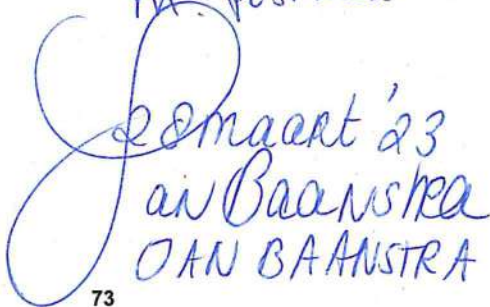 28 maart '23
Jan Baanstra
JAN BAANSTRA
73